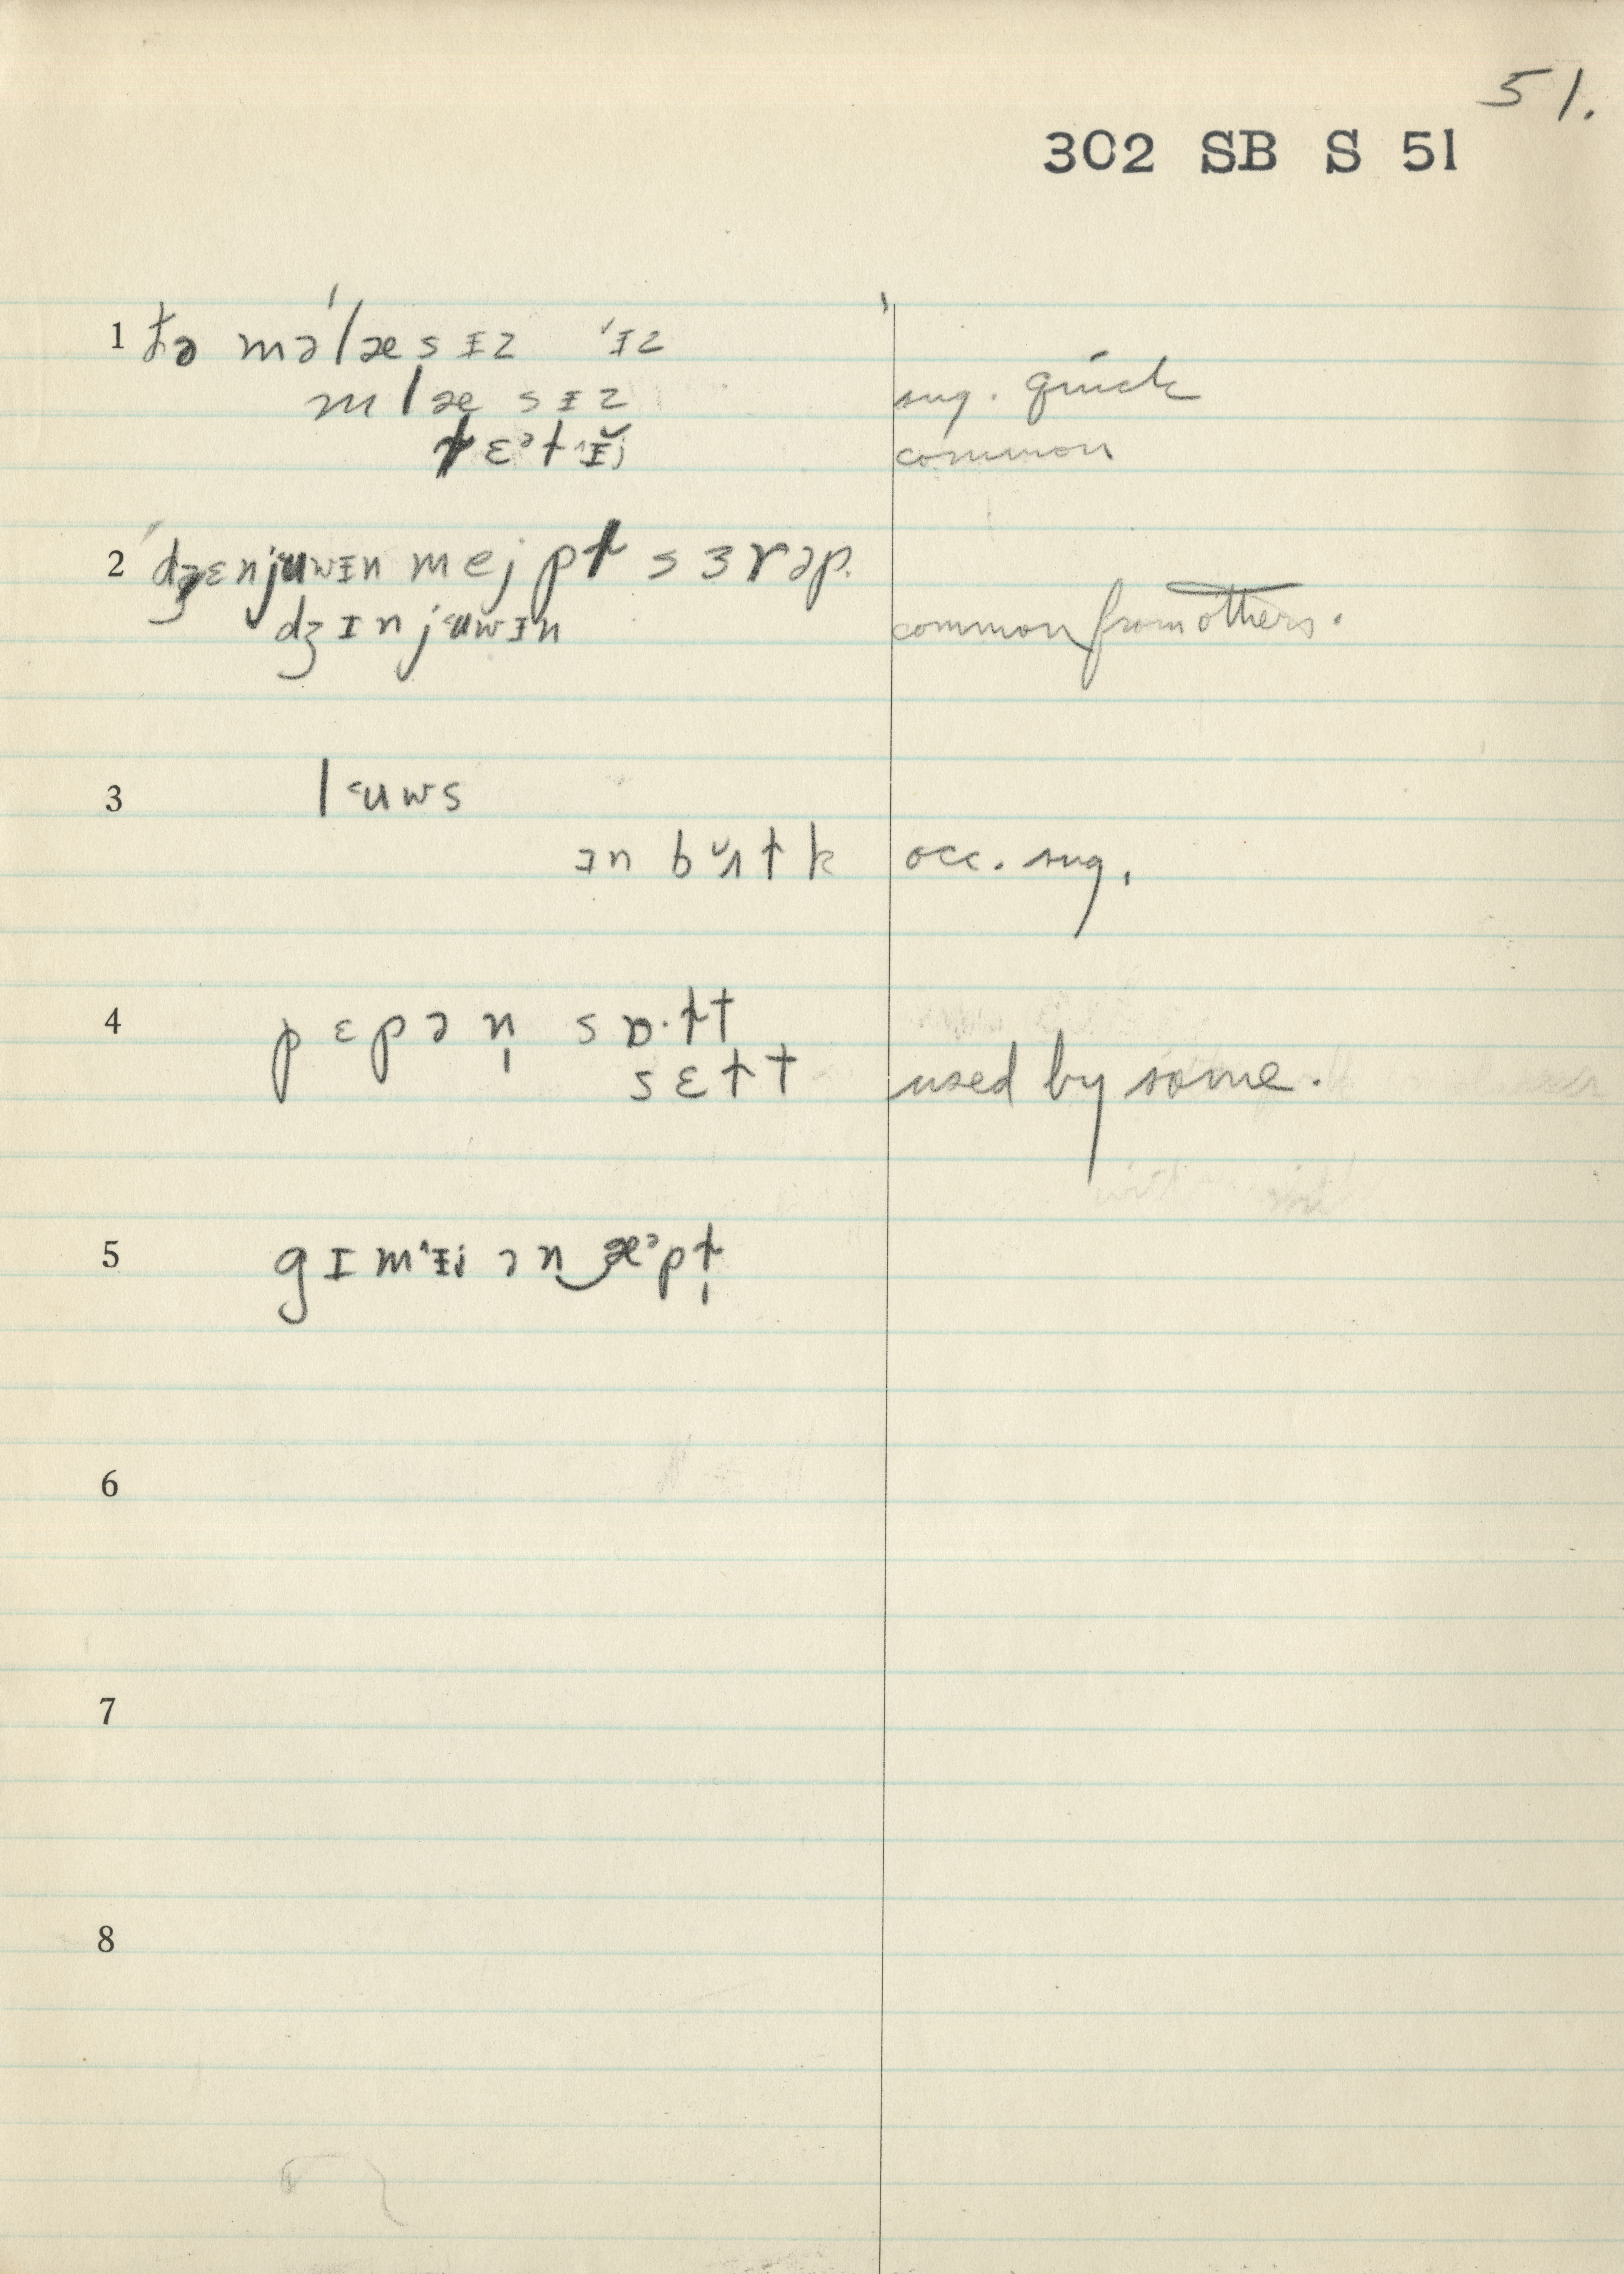 51.
302 SB S 51
1 t̬ə mə'læsɪz 'ɪz
mlæsɪz sug. quick
tɛətɪ̆j common
2 'dʒɛnjʉwɪn mejpt sɜrəp.
dʒɪnjʉwɪn common from others.
3 lʉws
ɪn bʌtk occ. sug.
4 pɛpən̩ sɒ·tt
sɛtt used by some.
5 gɪmɪj ən‿æəpt̩
6
7
8